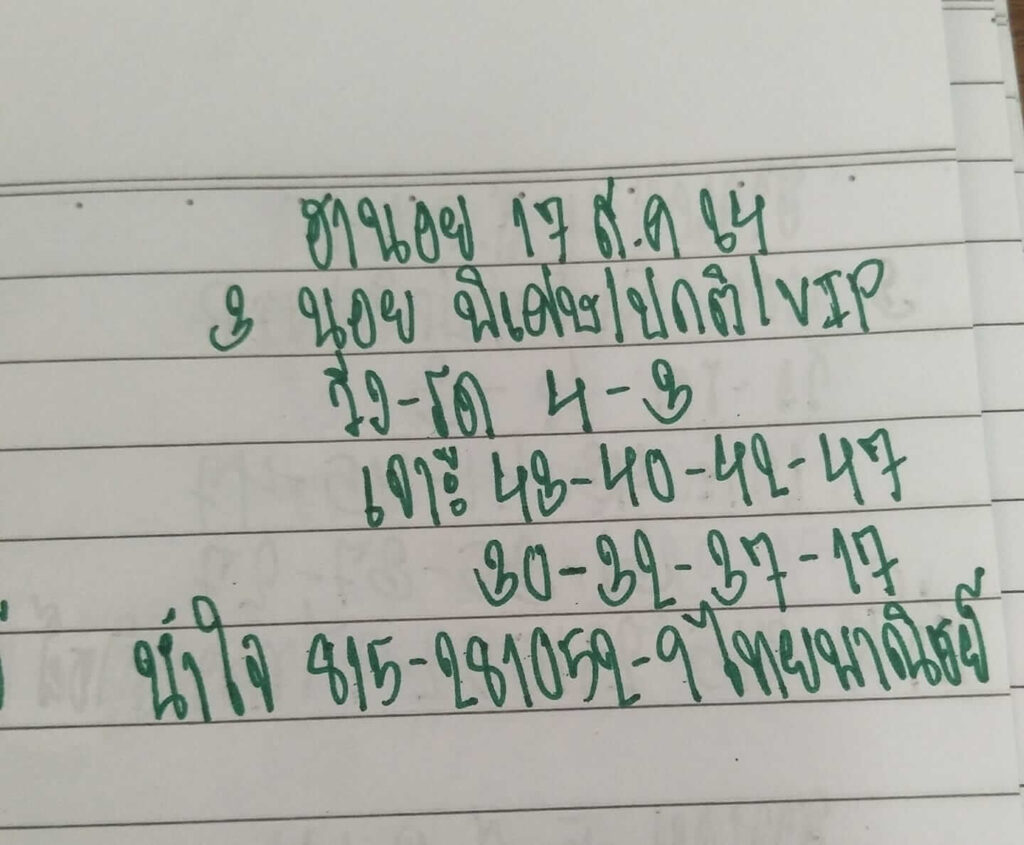 ฮานอย 17 ส.ค 64
3 นอย พิเศษ/ปกติ/VIP
วิ่ง-รูด 4-3
เจาะ 43-40-42-47
30-32-37-17
น้ำใจ 815-281052-9 ไทยพาณิชย์